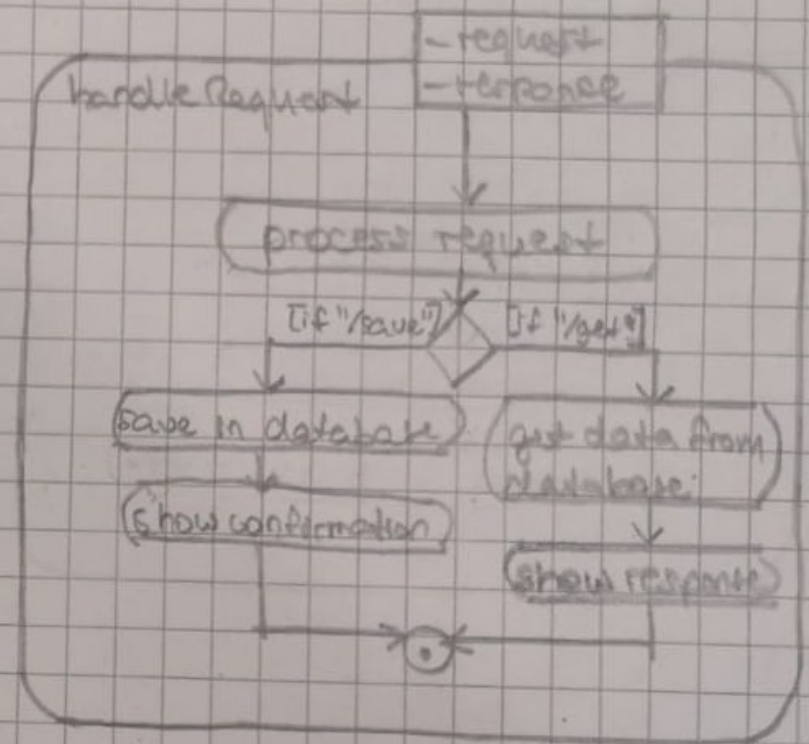 -request
-response
handleRequest
process request
[if "/save"]
[if "/get"]
save in database
get data from
database
show confirmation
show response